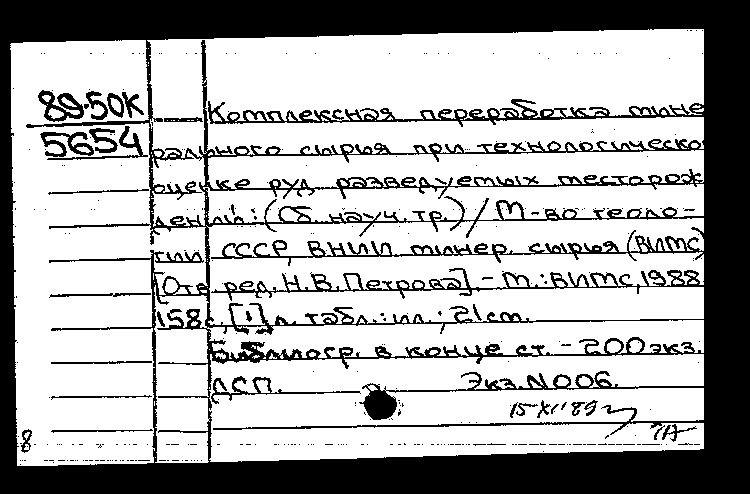 89-50К Комплексная переработка мине
5654 рального сырья при технологическо
оценке руд разведуемых месторож
дений: (Сб. науч. тр.) / М-во геоло-
гии СССР, ВНИИ минер. сырья (ВИМС)
[Отв ред. Н.В. Петрова]. - М.: ВИМС, 1988
158с, [1] л. табл.: ил.; 21см.
Библиогр. в конце ст. - 200 экз.
ДСП. Экз. N 006.
15-XII 89
8